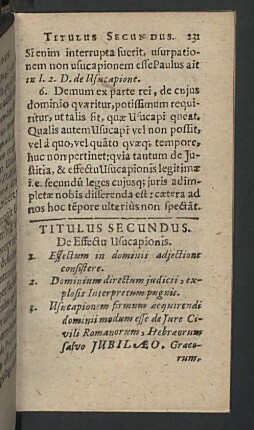 TITULUS SECUNDUS. 231
Si enim interrupta fuerit, usurpatio-
nem non usucapionem esse Paulus ait
in l. 2. D. de Usucapione.
6. Demum ex parte rei, de cujus
dominio quæritur, potissimum requi-
ritur, ut talis sit, quæ Usucapi queat.
Qualis autem Usucapi vel non possit,
vel à quo, vel quãto quæq; tempore,
huc non pertinet; qvia tantum de Ju-
stitia, & effectu Usucapionis legitimæ
i. e. secundũ leges cujusq; juris adim-
pletæ nobis disserenda est: cætera ad
nos hoc tẽpore ulterius non spectãt.
TITULUS SECUNDUS.
De Effectu Usucapionis.
1. Effectum in dominii adjectione
consistere.
2. Dominium directum judicii, ex-
plosis Interpretum pugnis.
3. Usucapionem firmum acquirendi
dominii modum esse de Jure Ci-
vili Romanorum, Hebræorum
salvo JUBILÆO, Græco-
rum,